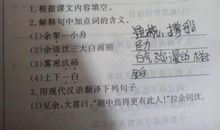 1.根据课文内容填空。
2.解释句中加点的词的含义。
(1)余拏一小舟
(2)余强饮三大白而别 尽力
(3)雾凇沆砀 白气弥漫的样
(4)上下一白
3.用现代汉语翻译下列句子
(1)见余,大喜曰:“湖中焉得更有此人!”拉余同饮。